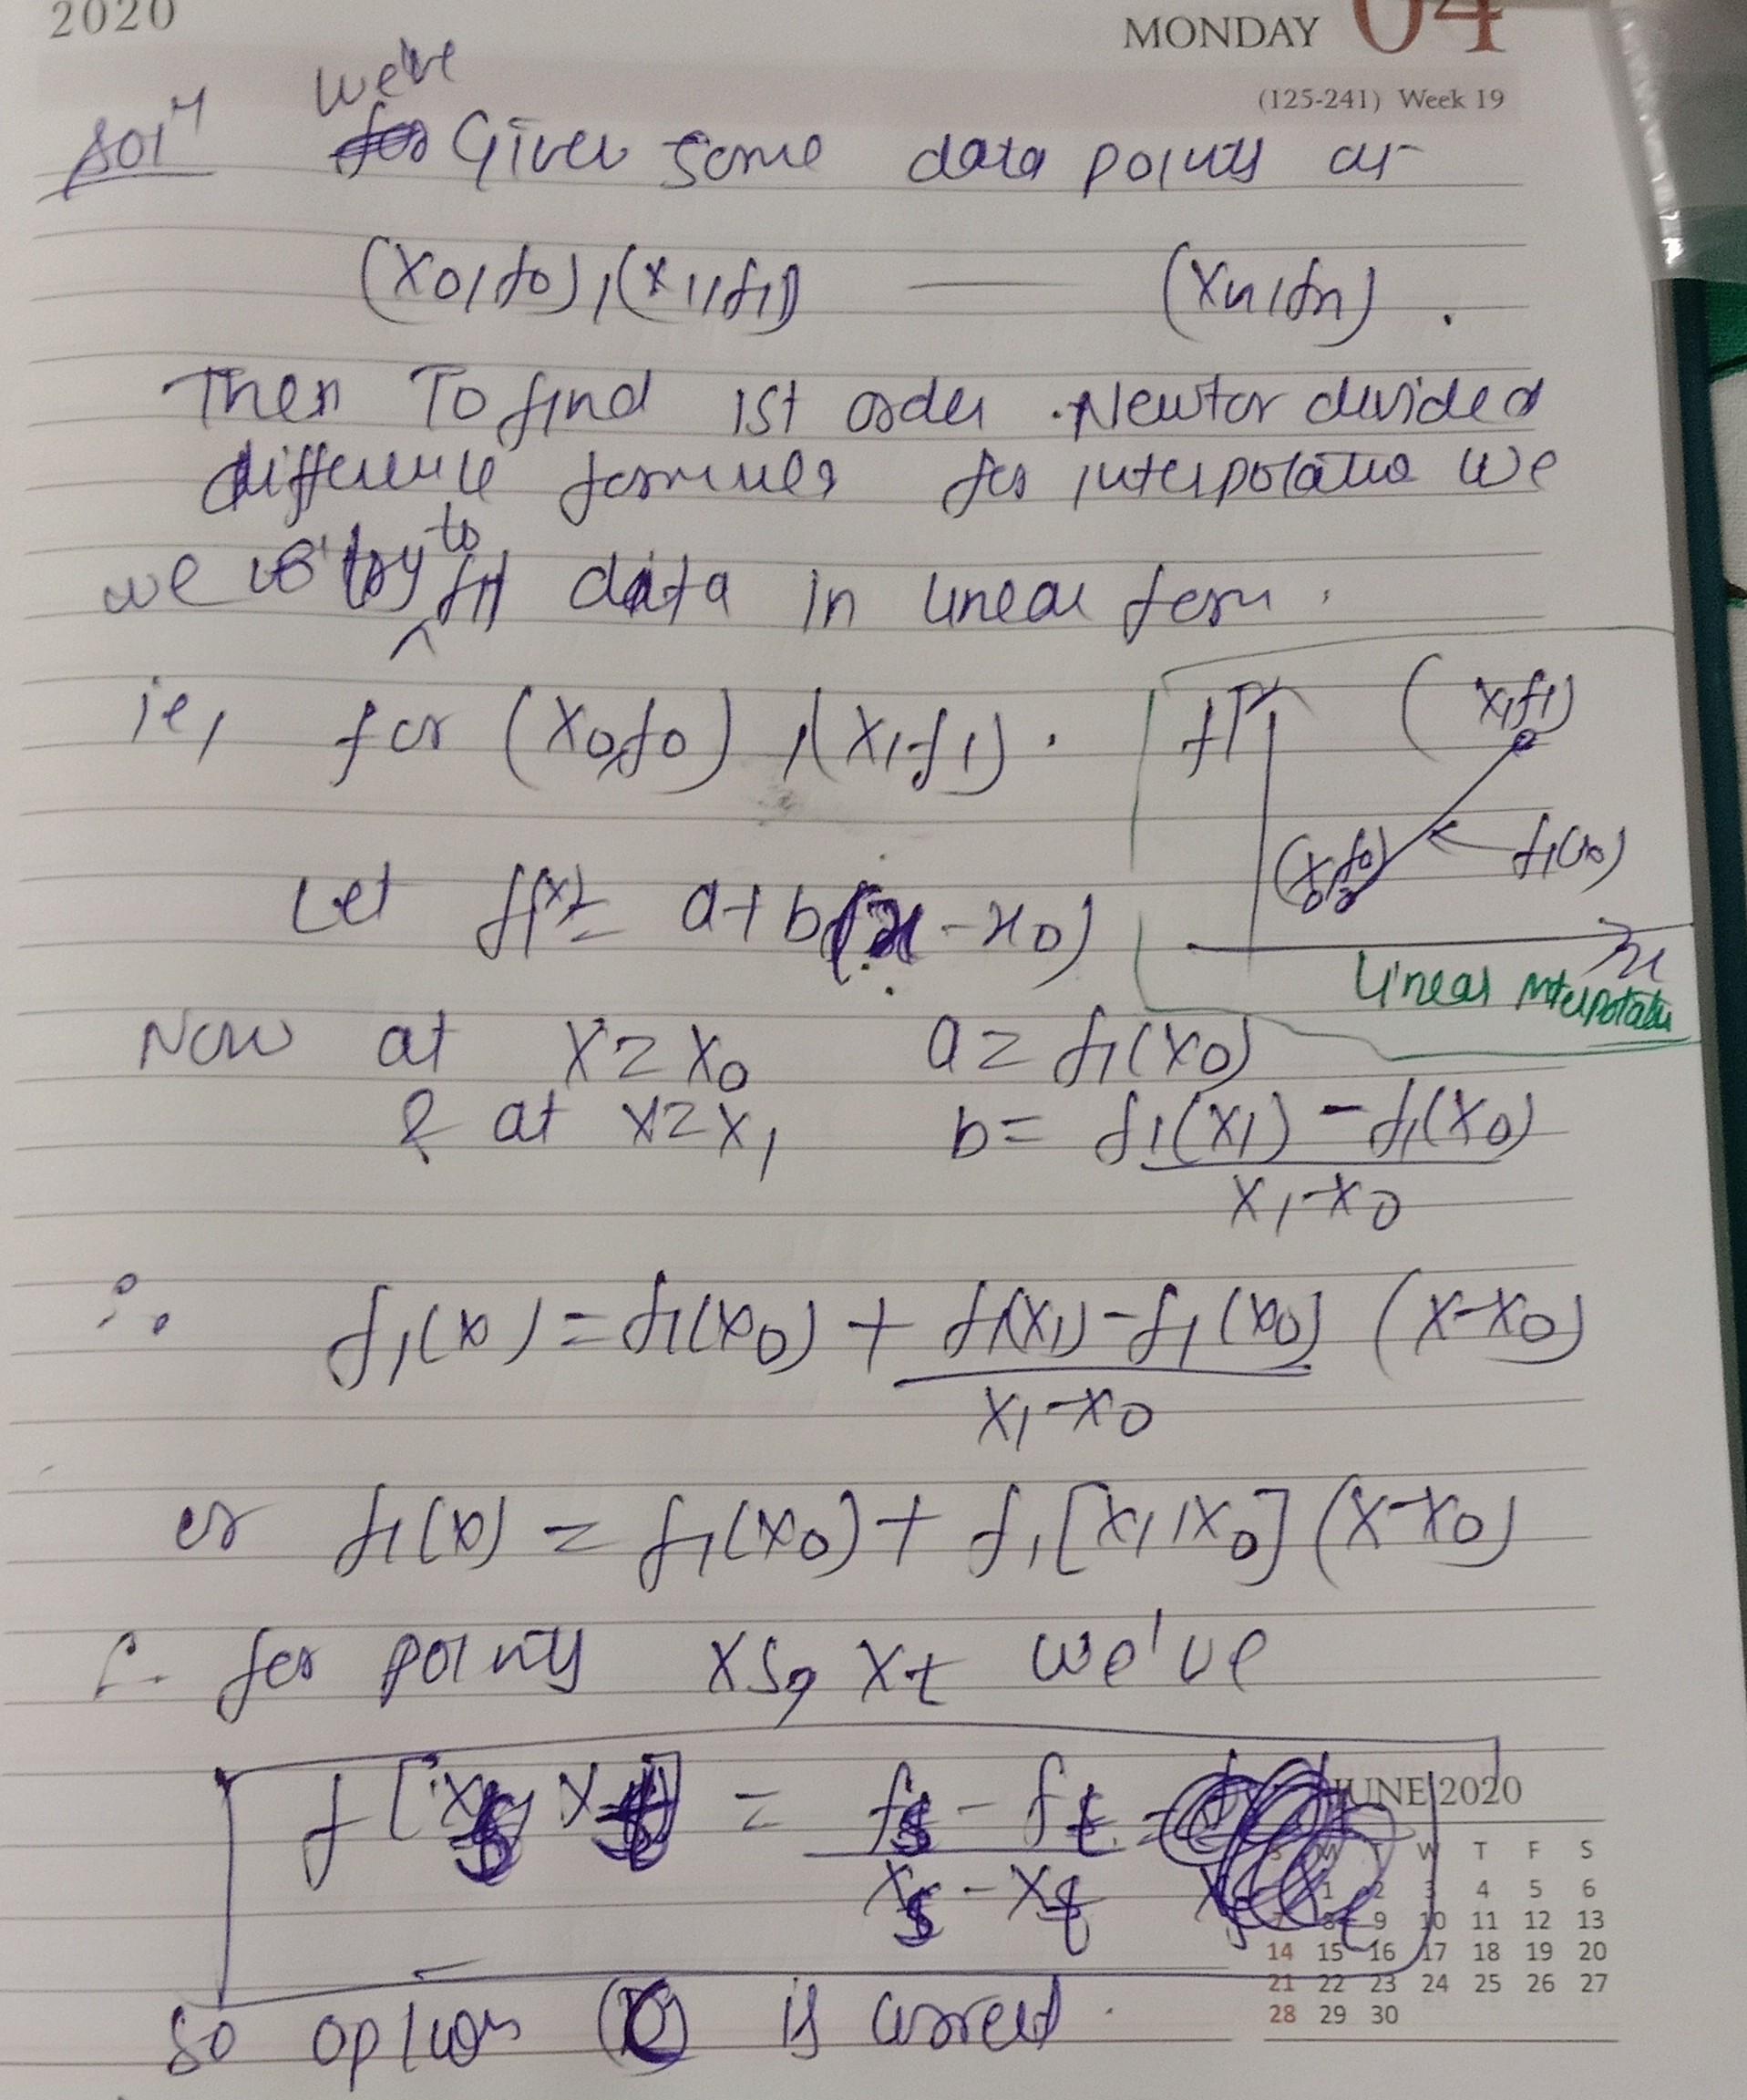 2020
MONDAY 04
(125-241) Week 19
We've
Soln Given some data points as
(x0, f0), (x1, f1) —— (xn, fn).
Then To find 1st order Newton divided
difference formula for interpolation we
we try to fit data in linear form.
ie, for (x0, f0), (x1, f1).
f (x1, f1)
(x0, f0) f1(x)
x
Linear interpolation
Let f1(x) = a + b(x - x0)
Now at x = x0 a = f1(x0)
& at x = x1 b = f1(x1) - f1(x0)
x1 - x0
∴ f1(x) = f1(x0) + f1(x1) - f1(x0) (x - x0)
x1 - x0
or f1(x) = f1(x0) + f1[x1, x0] (x - x0)
∴ for points xs, xt we've
f[xs, xt] = fs - ft
xs - xt
JUNE 2020
T F S
4 5 6
9 10 11 12 13
14 15 16 17 18 19 20
21 22 23 24 25 26 27
28 29 30
So option (C) is correct.